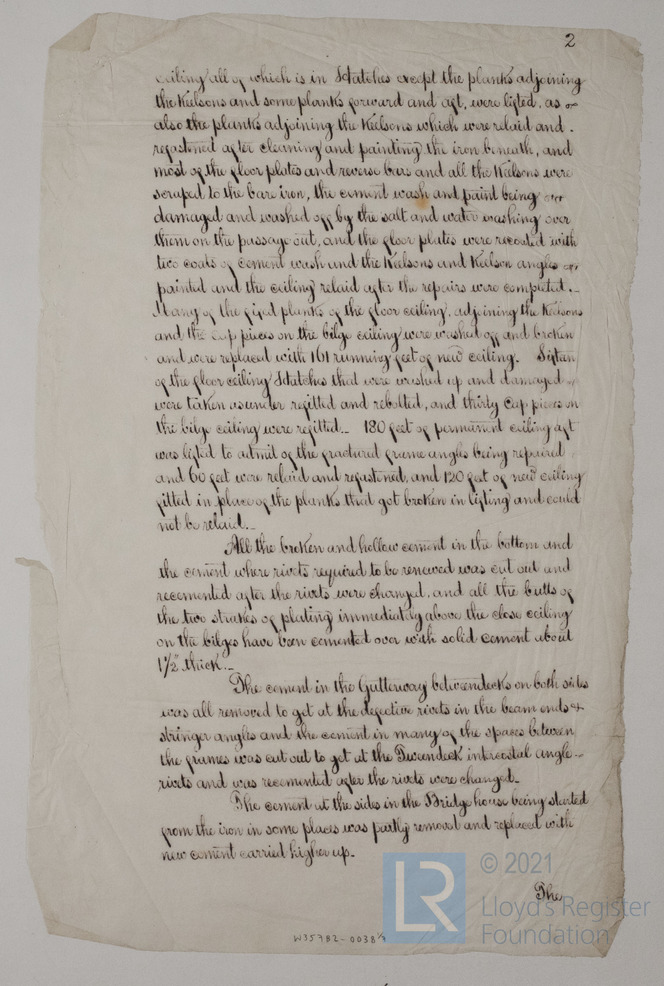 2
ceiling all of which is in Hatches except the planks adjoining
the Keelsons and some planks forward and aft, were lifted, as
also the planks adjoining the Keelsons which were relaid and
refastened after cleaning and painting the iron beneath, and
most of the floor plates and reverse bars and all the Keelsons were
scraped to the bare iron, the cement wash and paint being
damaged and washed off by the salt and water washing over
them on the passage out, and the floor plates were recoated with
two coats of cement wash and the Keelsons and Keelson angles
painted and the ceiling relaid after the repairs were completed._
Many of the fixed planks of the floor ceiling, adjoining the Keelsons
and the cap pieces on the bilge ceiling were washed off and broken
and were replaced with 161 running feet of new ceiling. Sixteen
of the floor ceiling Hatches that were washed up and damaged
were taken asunder refitted and rebolted, and thirty Cap pieces on
the bilge ceiling were refitted._ 180 feet of permanent ceiling aft
was lifted to admit of the fractured frame angles being repaired
and 60 feet were relaid and refastened, and 120 feet of new ceiling
fitted in place of the planks that got broken in lifting and could
not be relaid._
All the broken and hollow cement in the bottom and
the cement where rivets required to be renewed was cut out and
recemented after the rivets were changed, and all the butts of
the two strakes of plating immediately above the close ceiling
on the bilges have been cemented over with solid cement about
1½" thick._
The cement in the Gutterway betweendecks on both sides
was all removed to get at the defective rivets in the beam ends &
stringer angles and the cement in many of the spaces between
the frames was cut out to get at the Tweendeck intercostal angle
rivets and was recemented after the rivets were changed._
The cement at the sides in the Bridge house being started
from the iron in some places was partly removed and replaced with
new cement carried higher up._
The
W357B2-0038½
LR
© 2021
Lloyd's Register
Foundation